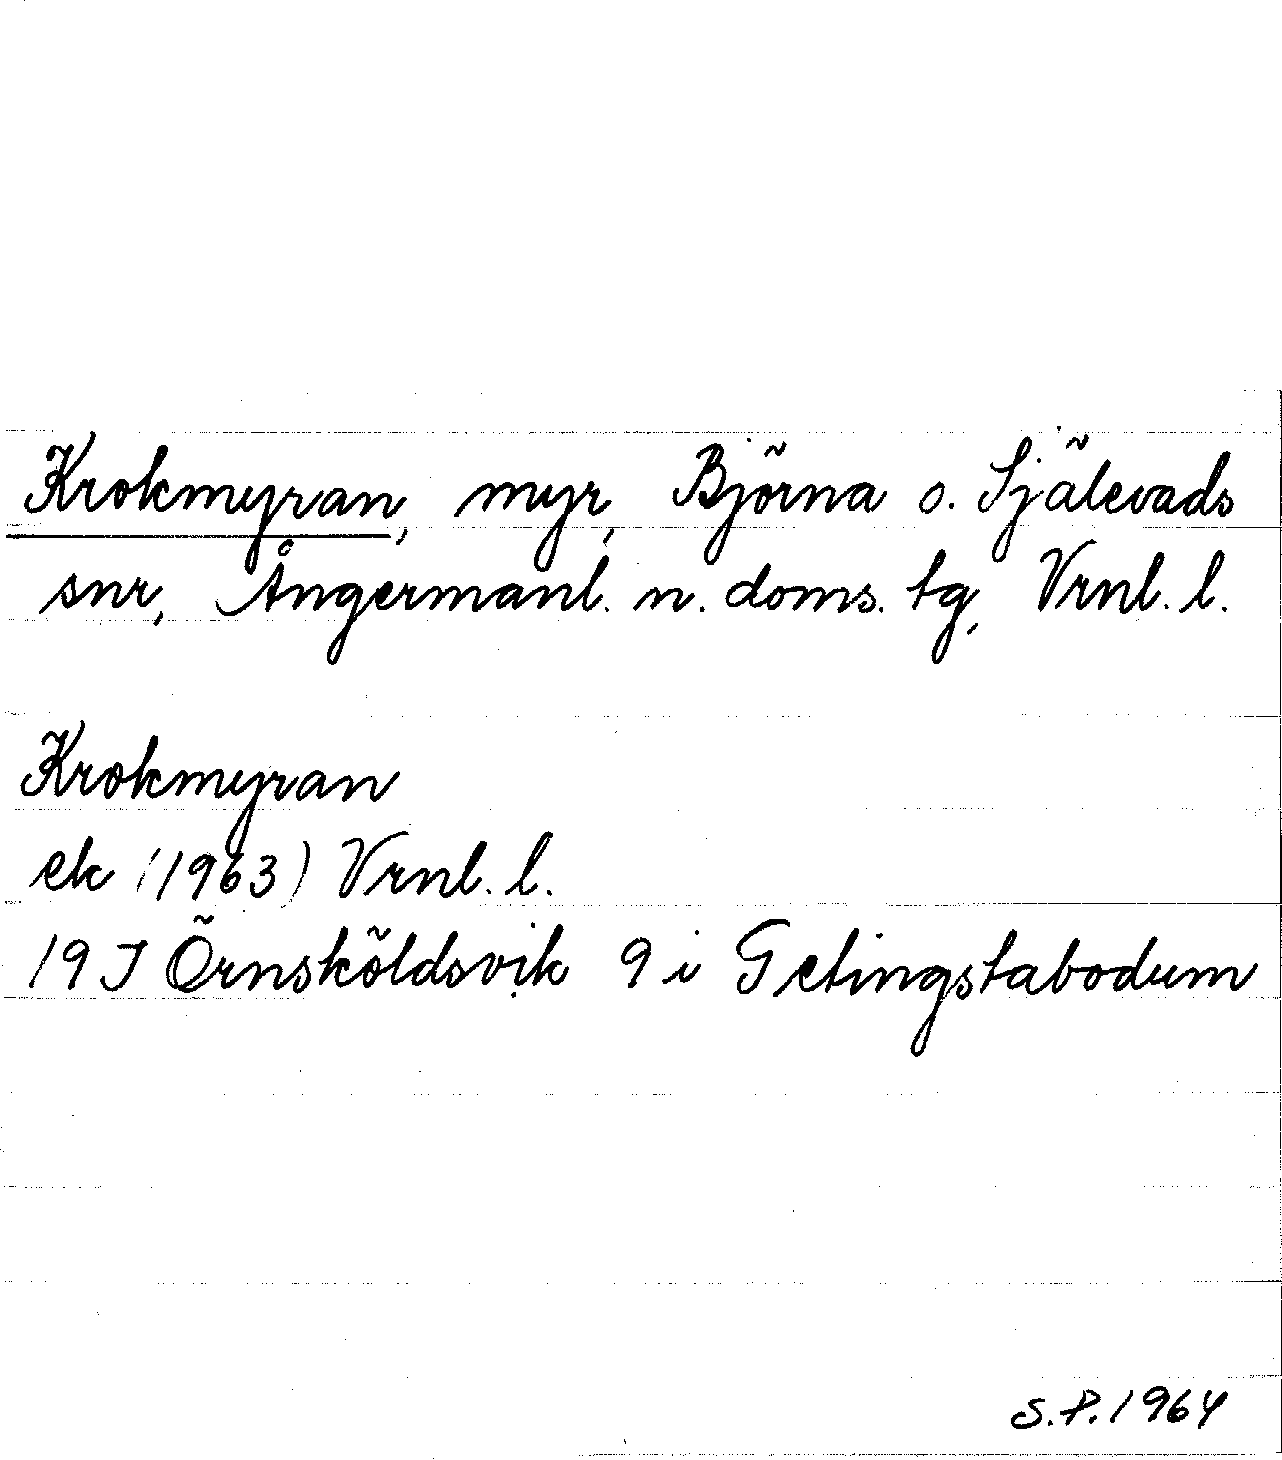 Krokmyran, myr, Björna o. Själevads
snr, Ångermanl. n. doms. tg, Vrnl. l.
Krokmyran
ek (1963) Vrnl. l.
19 J Örnsköldsvik 9 i Getingstabodum
S.P. 1964